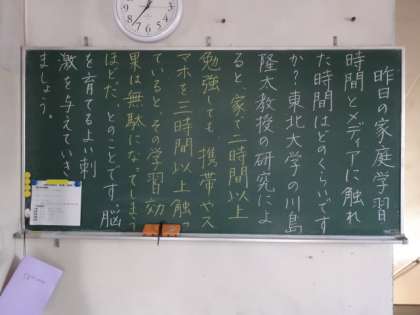 昨日の家庭学習
時間とメディアに触れ
た時間はどのくらいです
か?東北大学の川島
隆太教授の研究によ
ると家で二時間以上
勉強しても、携帯やス
マホを三時間以上触っ
ているとその学習効
果は無駄になってしまう
ほどだ、とのことです。脳
を育てるよい刺
激を与えていき
ましょう。